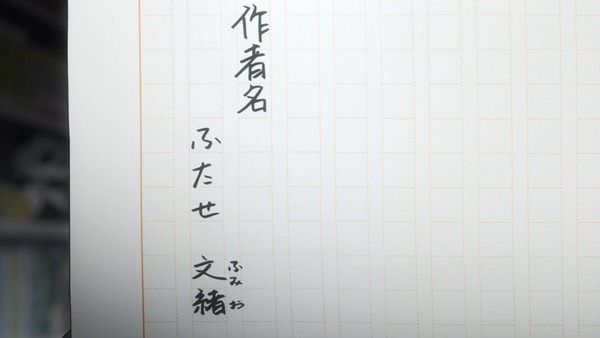 作者名
ふたせ 文緒
ふみお